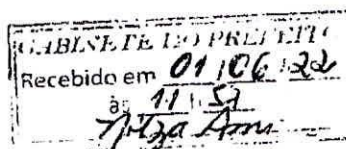 GABINETE DO PREFEITO
Recebido em 01/06/22
às 11:51